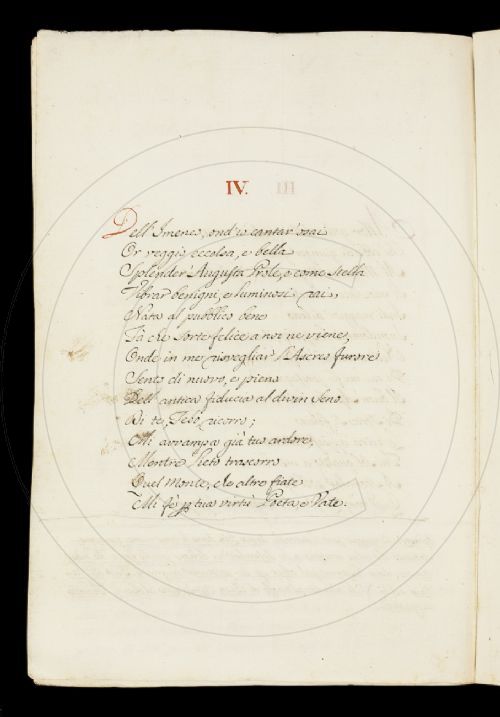 IV.
Dell'Imeneo, ond'io cantar' osai
Or veggio eccelsa, e bella
Splender' Augusta Prole, e come Stella
Vibrar' benigni, e luminosi rai,
Nata al pubblico bene
Tà che sorte felice a noi ne viene,
Onde in me risvegliar' l'Ascreo furore
Sento di nuovo, e pieno
Dell'antica fiducia al divin Seno
Di te, Febo ricorro;
Mi avvampa già tuo ardore,
Mentre lieto trascorro
Quel Monte, che altre fiate
Mi fè p tua virtù Poeta e Vate.